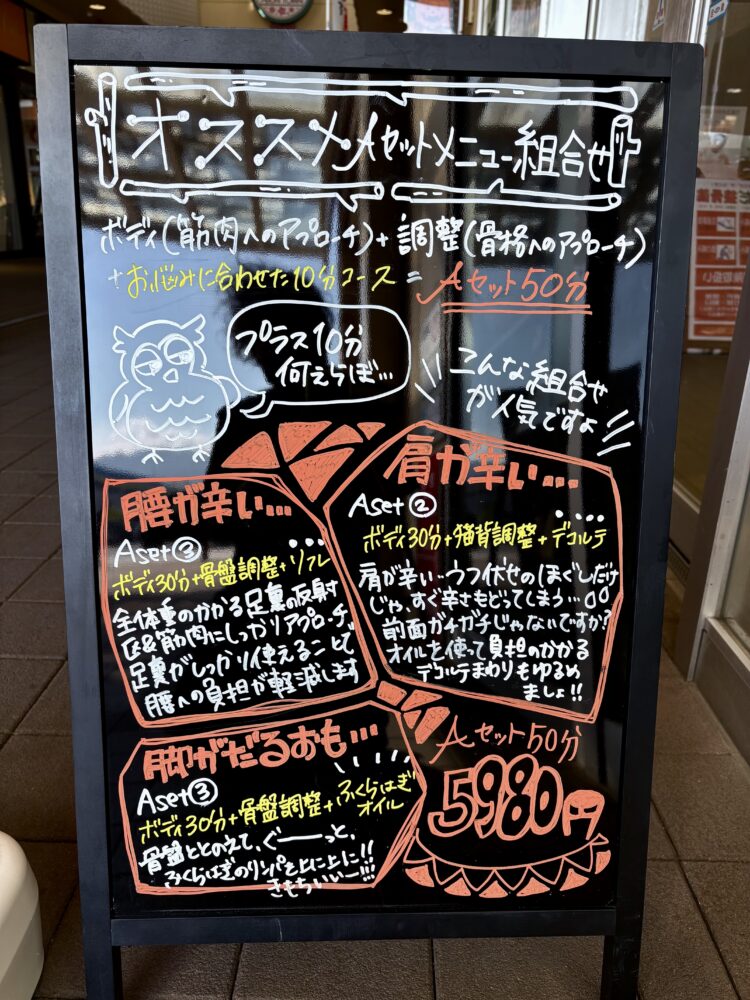 オススメAセットメニュー組合せ
ボディ(筋肉へのアプローチ)+調整(骨格へのアプローチ)
+お悩みに合わせた10分コース=Aセット50分
プラス10分
何えらぼ…
こんな組合せ
が人気ですよ
肩が辛い…
Aset②
ボディ30分+猫背調整+デコルテ
肩が辛い…ウツ伏せのほぐしだけ
じゃ、すぐ辛さもどってしまう…
前面ガチガチじゃないですか?
オイルを使って負担のかかる
デコルテまわりもゆるめ
ましょ!!
腰が辛い…
Aset③
ボディ30分+骨盤調整+リフレ
全体重のかかる足裏の反射
区&筋肉にしっかりアプローチ。
足裏がしっかり使えることで
腰への負担が軽減します
脚がだるおも…
Aset③
ボディ30分+骨盤調整+ふくらはぎ
オイル
骨盤ととのえて、ぐーーっと、
ふくらはぎのリンパを上に上に!!
きもちいいー!!!
Aセット50分
5980円